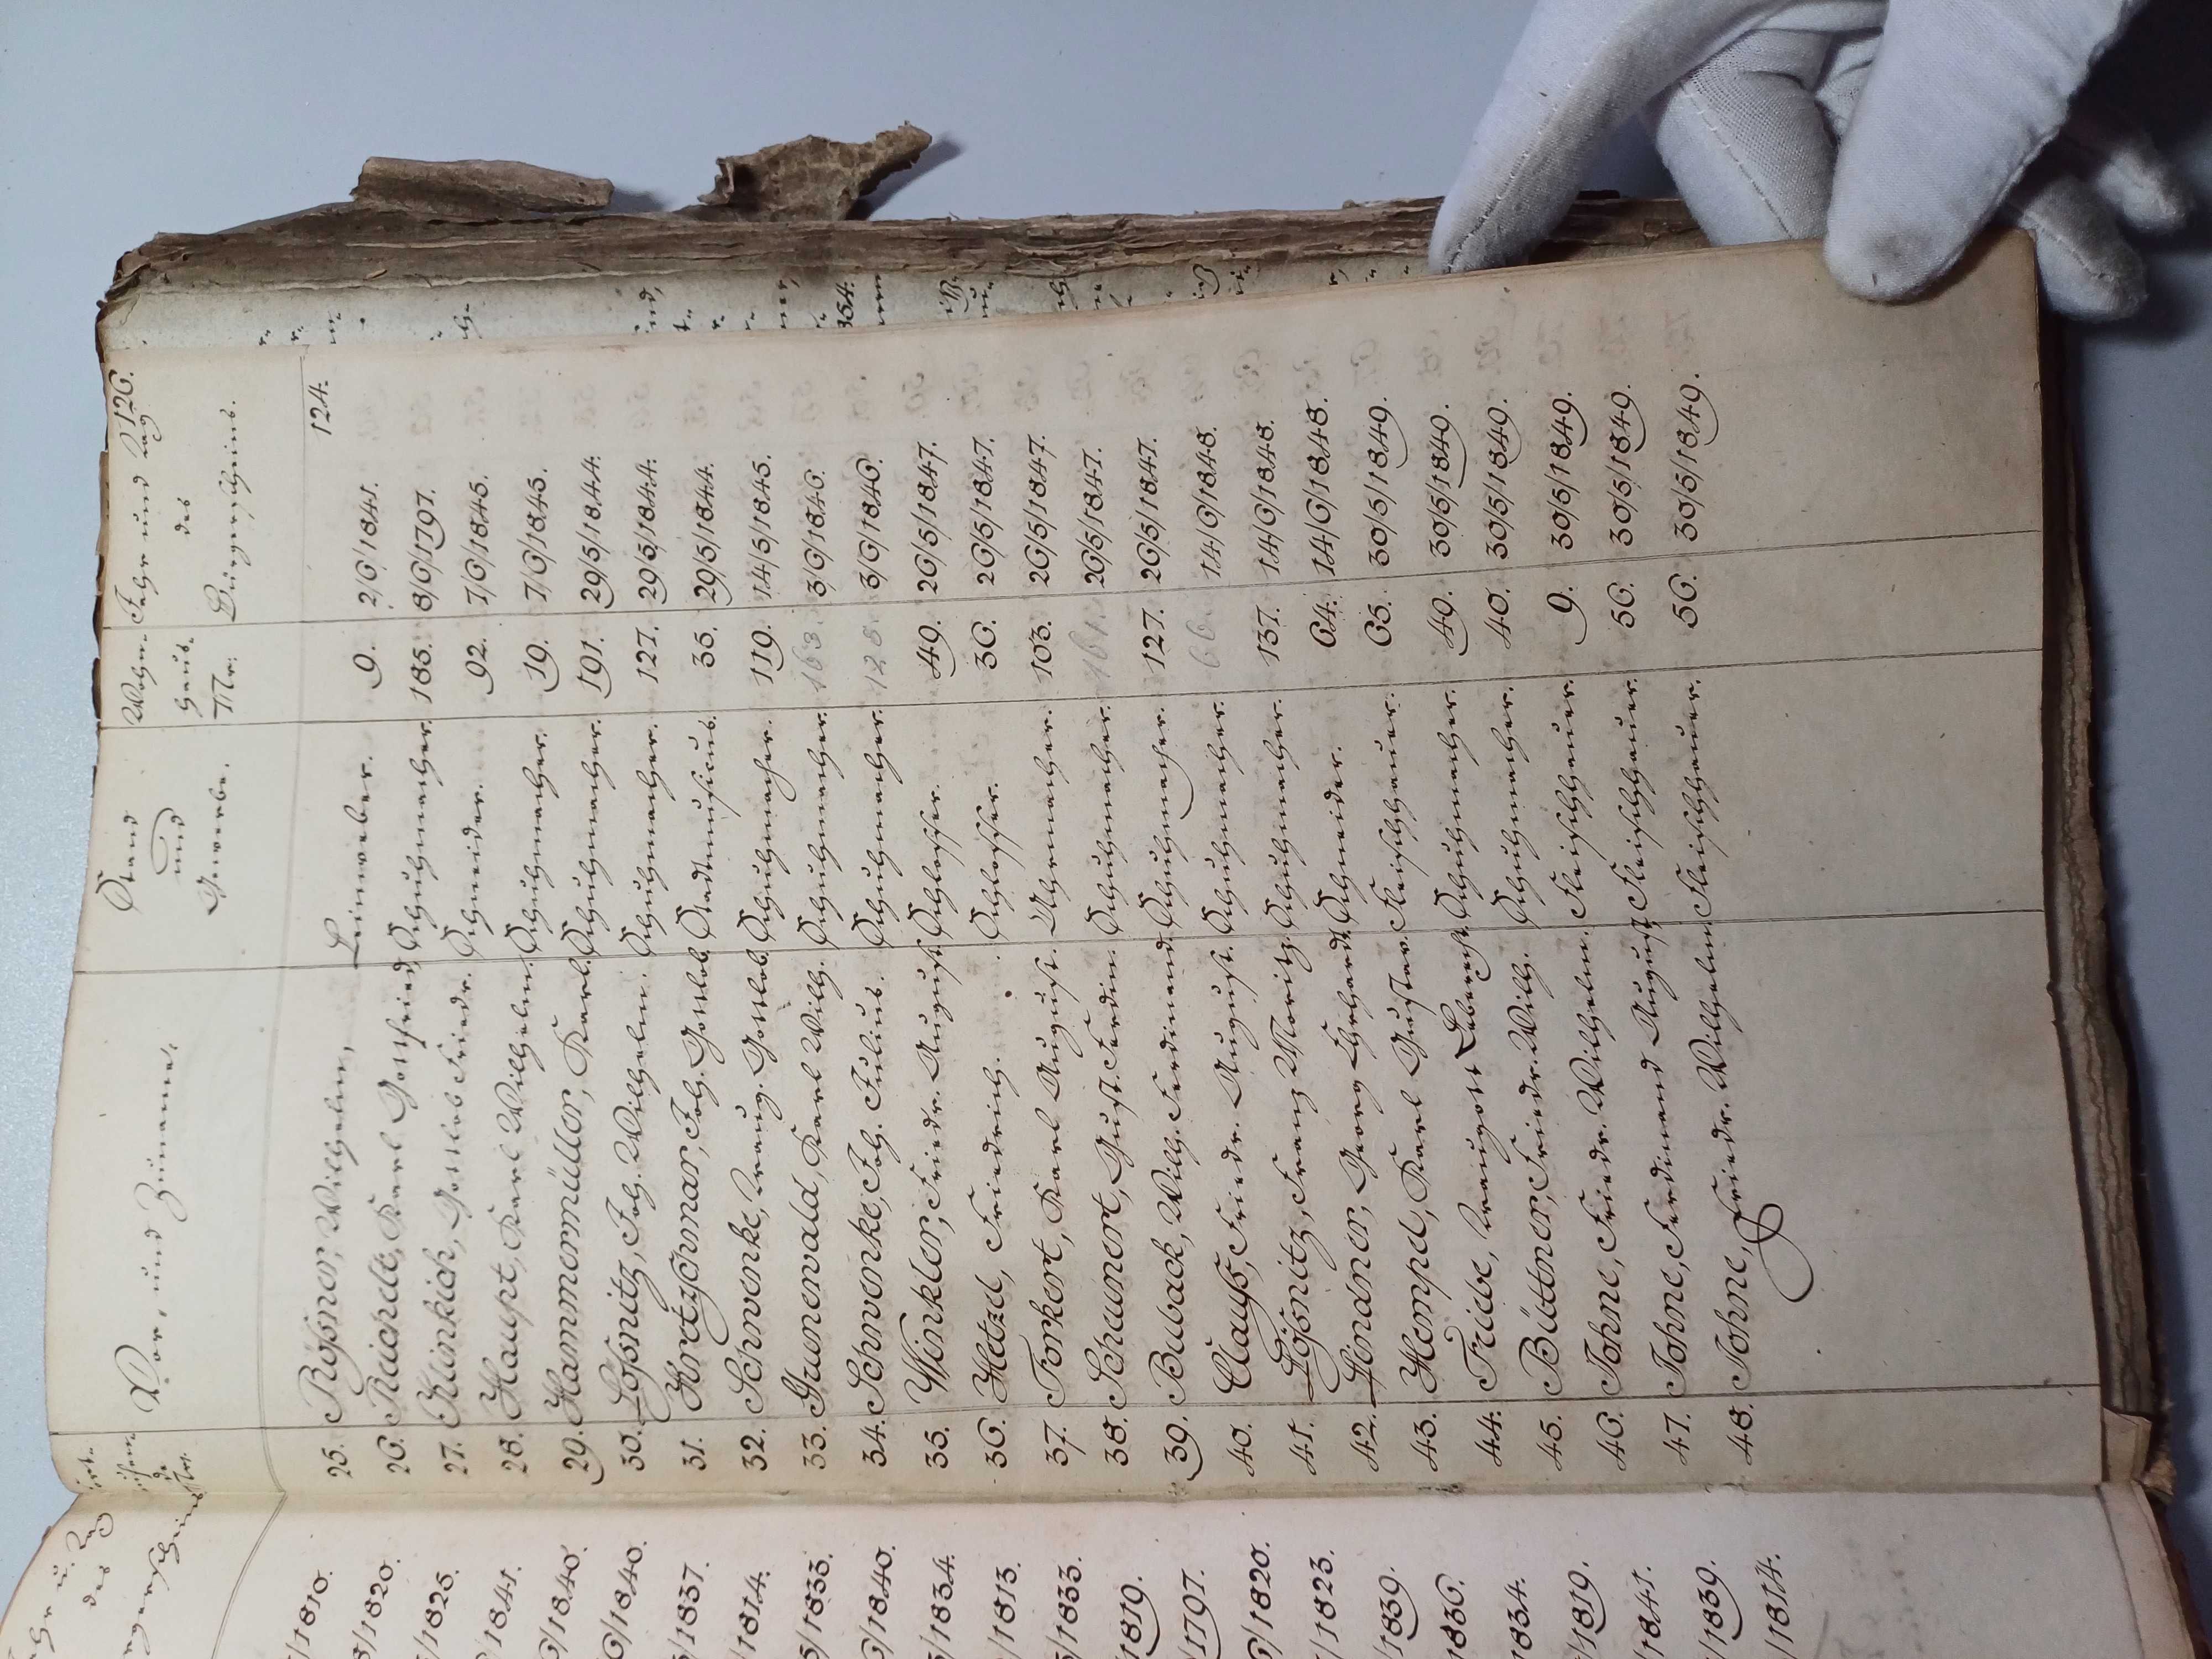 126.
Vor- und Zuname.
Stand und Gewerbe.
Wohn- haus- Nr.
Jahr und Tag des Bürgerscheins.
124.
25. Rößner, Wilhelm, Leinweber. 9. 2/6/1841.
26. Reichelt, Karl Gottfried Schuhmacher. 185. 8/6/1797.
27. Klinkich, Gottlob Friedr. Schneider. 92. 7/6/1845.
28. Haupt, Karl Wilhelm. Schuhmacher. 19. 7/6/1845.
29. Hammermüller, Karl. Schuhmacher. 191. 29/5/1844.
30. Loßnitz, Joh. Wilhelm. Schuhmacher. 127. 29/5/1844.
31. Kretzschmar, Joh. Gottlob Stadtmusicus. 35. 29/5/1844.
32. Schwenke, Traug. Gottlob Schuhmacher. 119. 14/5/1845.
33. Grunewald, Karl Wilh. Schuhmacher. 163. 3/6/1846.
34. Schwenke, Joh. Julius. Schuhmacher. 128. 3/6/1846.
35. Winkler, Friedr. August. Schlosser. 49. 26/5/1847.
36. Hetzel, Friedrich. Schlosser. 36. 26/5/1847.
37. Torkert, Karl August. Uhrmacher. 103. 26/5/1847.
38. Schunert, Gust. Ferdin. Schuhmacher. 161. 26/5/1847.
39. Buback, Wilh. Ferdinand. Schuhmacher. 127. 26/5/1847.
40. Clauß, Friedr. August. Schuhmacher. 66. 14/6/1848.
41. Lößnitz, Franz Moritz. Schuhmacher. 137. 14/6/1848.
42. Lindner, Georg Gebhardt. Schneider. 64. 14/6/1848.
43. Hempel, Karl Gustav. Fleischhauer. 65. 30/5/1849.
44. Friebe, Traugott Leberecht. Schuhmacher. 49. 30/5/1849.
45. Büttner, Friedr. Wilh. Schuhmacher. 40. 30/5/1849.
46. Johne, Friedr. Wilhelm. Fleischhauer. 9. 30/5/1849.
47. Johne, Ferdinand August. Fleischhauer. 56. 30/5/1849.
48. Johne, Friedr. Wilhelm Fleischhauer. 56. 30/5/1849.
des
/1810.
/1820.
/1825.
/1841.
/1840.
6/1840.
/1837.
/1814.
5/1833.
/1840.
/1834.
/1813.
/1833.
/1819.
/1797.
/1820.
/1823.
/1839.
1836.
1834.
/1819.
/1841.
/1839.
/1814.